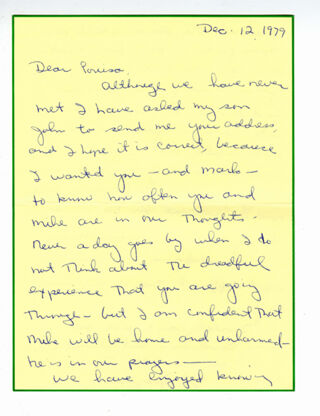 Dec. 12 1979
Dear
Although we have never
met I have asked my son
John to send me your address,
and I hope it is correct, because
I wanted you - and Marks -
to know how often you and
Mike are in our thoughts.
Never a day goes by when I do
not think about the dreadful
experience that you are going
through - but I am confident that
Mike will be home and unharmed -
he is in our prayers -
We have enjoyed knowing